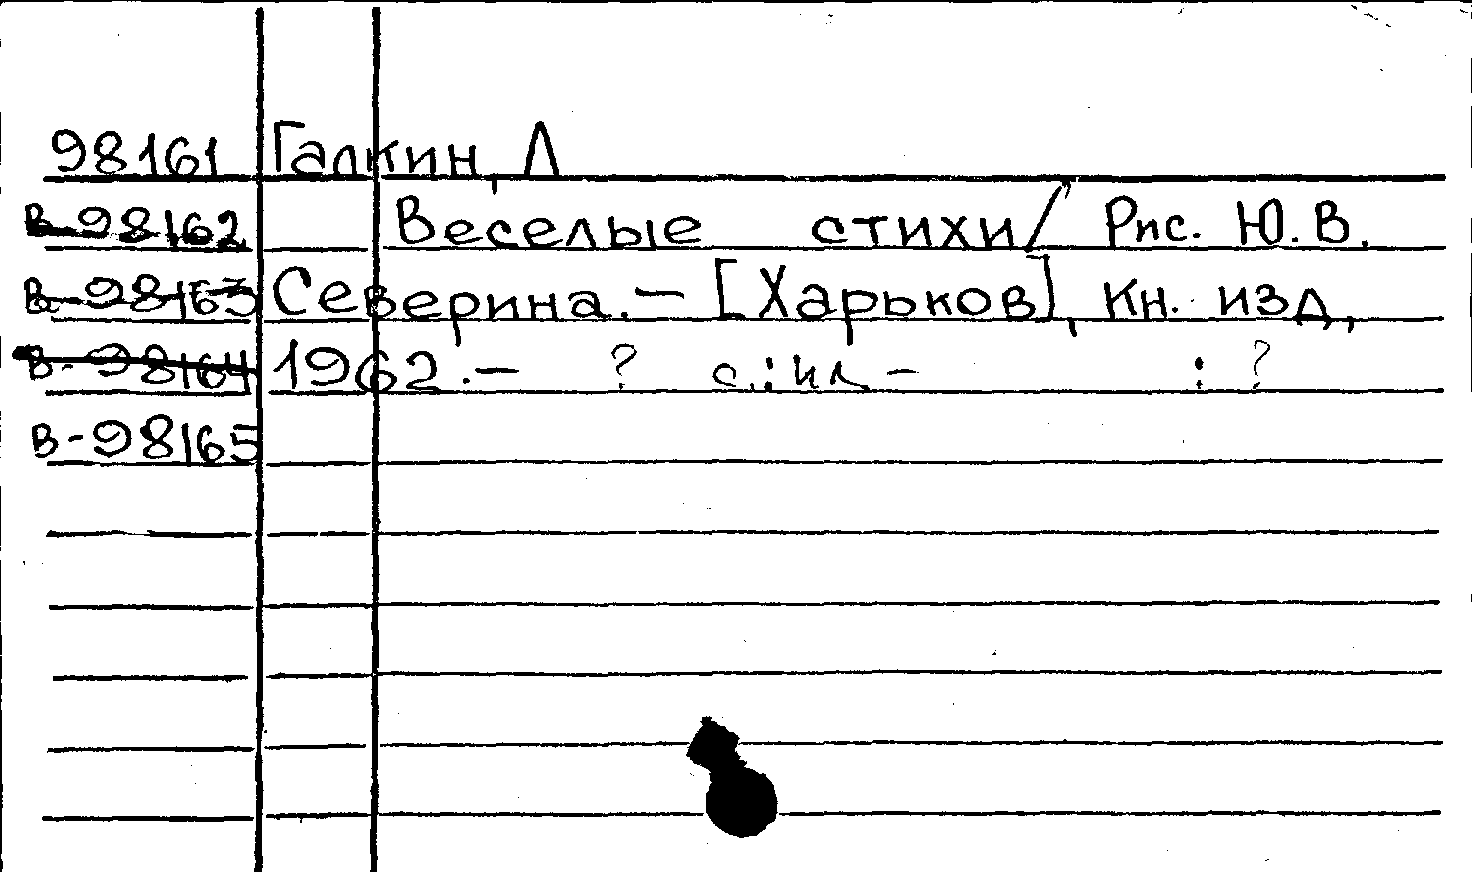 98161 Галкин, Л
В-98162 Веселые стихи/ Рис. Ю.В.
В-98163 Северина.— [Харьков], Кн. изд,
В-98164 1962.— ? с.: ил — : ?
В-98165